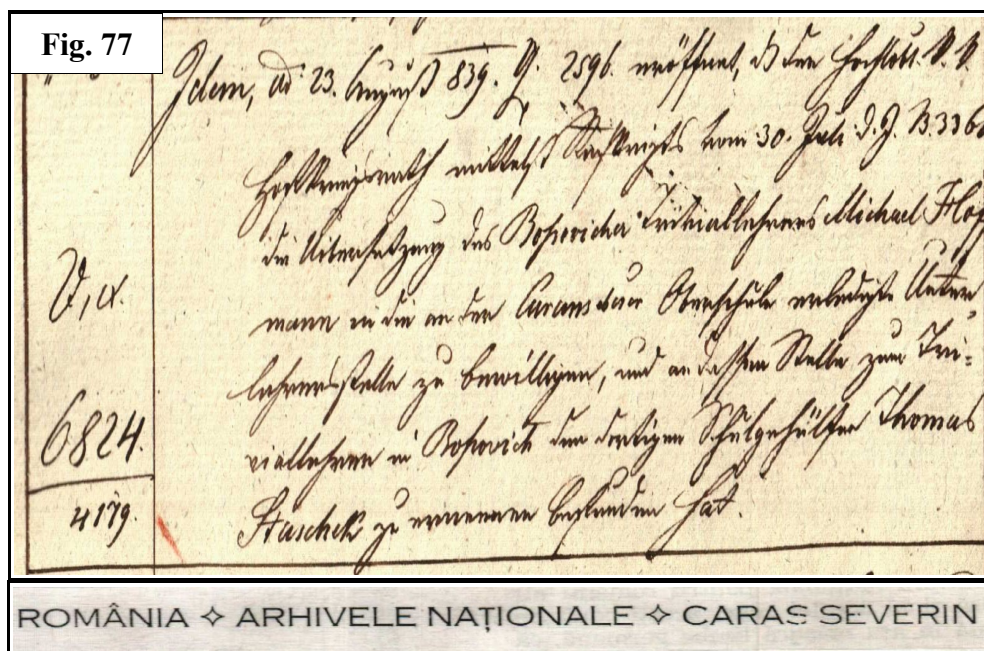 Fig. 77
Idem, dd 23. August 839. Q. 2596. eröffnet, dß der Hochlöbl. K. K.
Hofkriegsrath mittelst Reskripts vom 30. Juli d. J. B. 336
die Uibersetzung des Bosovicher Triviallehrers Michael Hof
mann in die an der Caransebeser Oberschule erledigte Unter
V, a.
lehrersstelle zu bewilligen, und an dessen Stelle zum Tri=
viallehrer in Bosovich den dortigen Schulgehülfen Thomas
6824.
4179.
Staschek zu ernennen befunden hat.
ROMÂNIA ✧ ARHIVELE NAȚIONALE ✧ CARAS SEVERIN